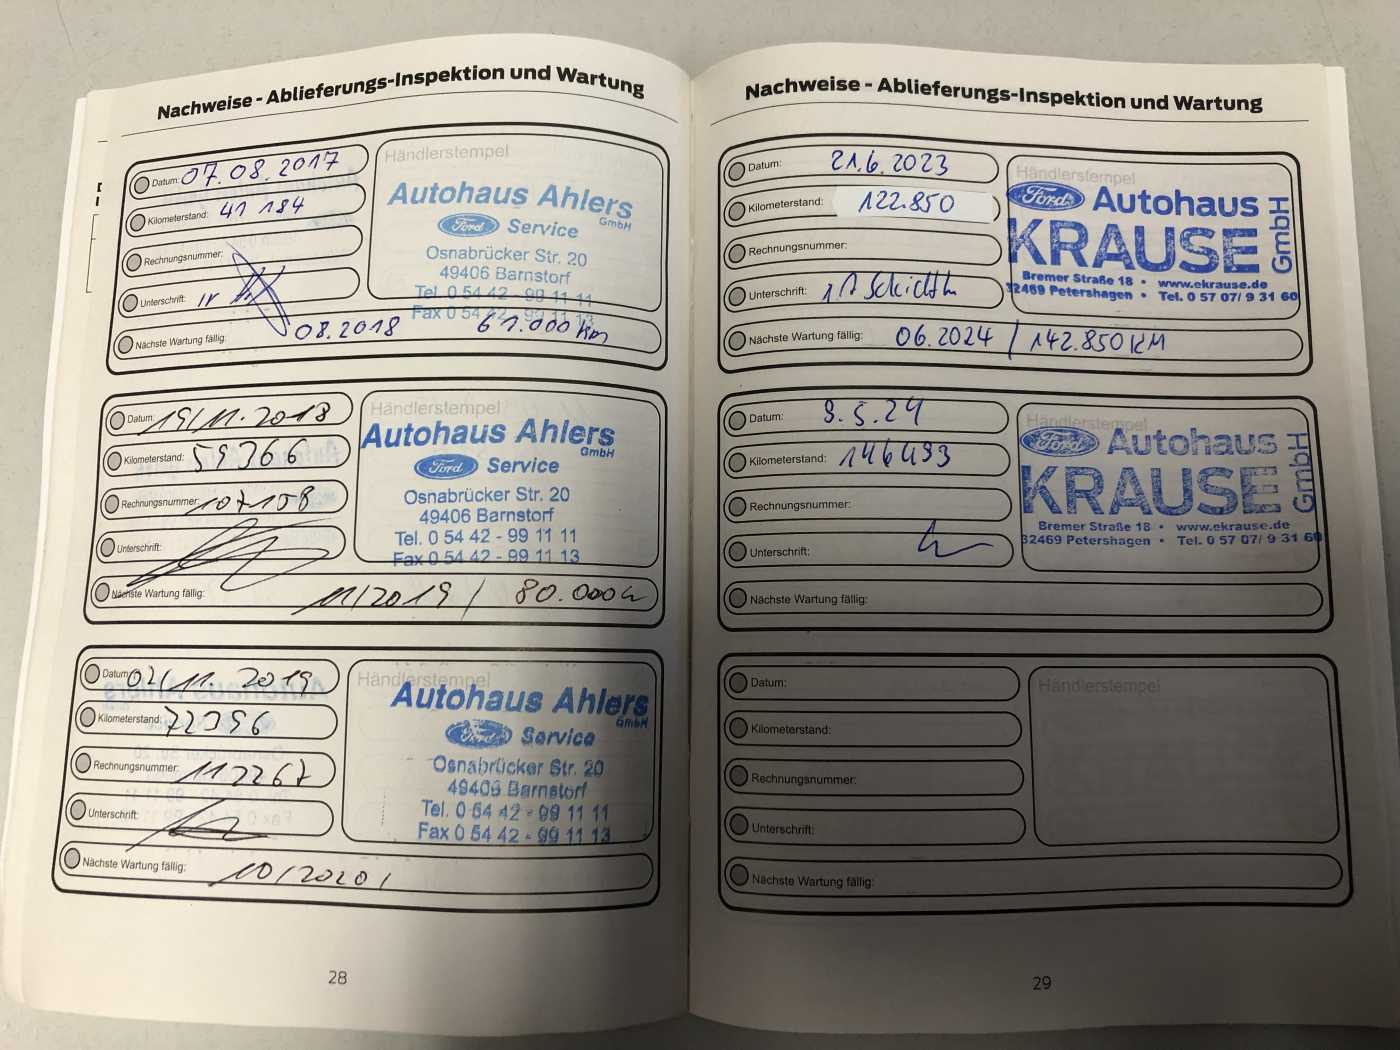 Nachweise - Ablieferungs-Inspektion und Wartung
Datum: 07.08.2017
Kilometerstand: 41 184
Rechnungsnummer:
Unterschrift:
Nächste Wartung fällig: 08.2018 61.000 km
Händlerstempel
Autohaus Ahlers
GmbH
Ford Service
Osnabrücker Str. 20
49406 Barnstorf
Tel. 0 54 42 - 99 11 11
Fax 0 54 42 - 99 11 13
Datum: 19/11.2018
Kilometerstand: 59366
Rechnungsnummer: 107158
Unterschrift:
Nächste Wartung fällig: 11/2019 / 80.000
Händlerstempel
Autohaus Ahlers
GmbH
Ford Service
Osnabrücker Str. 20
49406 Barnstorf
Tel. 0 54 42 - 99 11 11
Fax 0 54 42 - 99 11 13
Datum: 04/11.2019
Kilometerstand: 72396
Rechnungsnummer: 112267
Unterschrift:
Nächste Wartung fällig: 10/2020/
Händlerstempel
Autohaus Ahlers
GmbH
Ford Service
Osnabrücker Str. 20
49406 Barnstorf
Tel. 0 54 42 - 99 11 11
Fax 0 54 42 - 99 11 13
28
Nachweise - Ablieferungs-Inspektion und Wartung
Datum: 21.6.2023
Kilometerstand: 122.850
Rechnungsnummer:
Unterschrift:
Nächste Wartung fällig: 06.2024 / 142.850 KM
Händlerstempel
Ford Autohaus
KRAUSE GmbH
Bremer Straße 18 • www.ekrause.de
32469 Petershagen • Tel. 0 57 07/ 9 31 60
Datum: 8.5.24
Kilometerstand: 146493
Rechnungsnummer:
Unterschrift:
Nächste Wartung fällig:
Händlerstempel
Ford Autohaus
KRAUSE GmbH
Bremer Straße 18 • www.ekrause.de
32469 Petershagen • Tel. 0 57 07/ 9 31 60
Datum:
Kilometerstand:
Rechnungsnummer:
Unterschrift:
Nächste Wartung fällig:
Händlerstempel
29